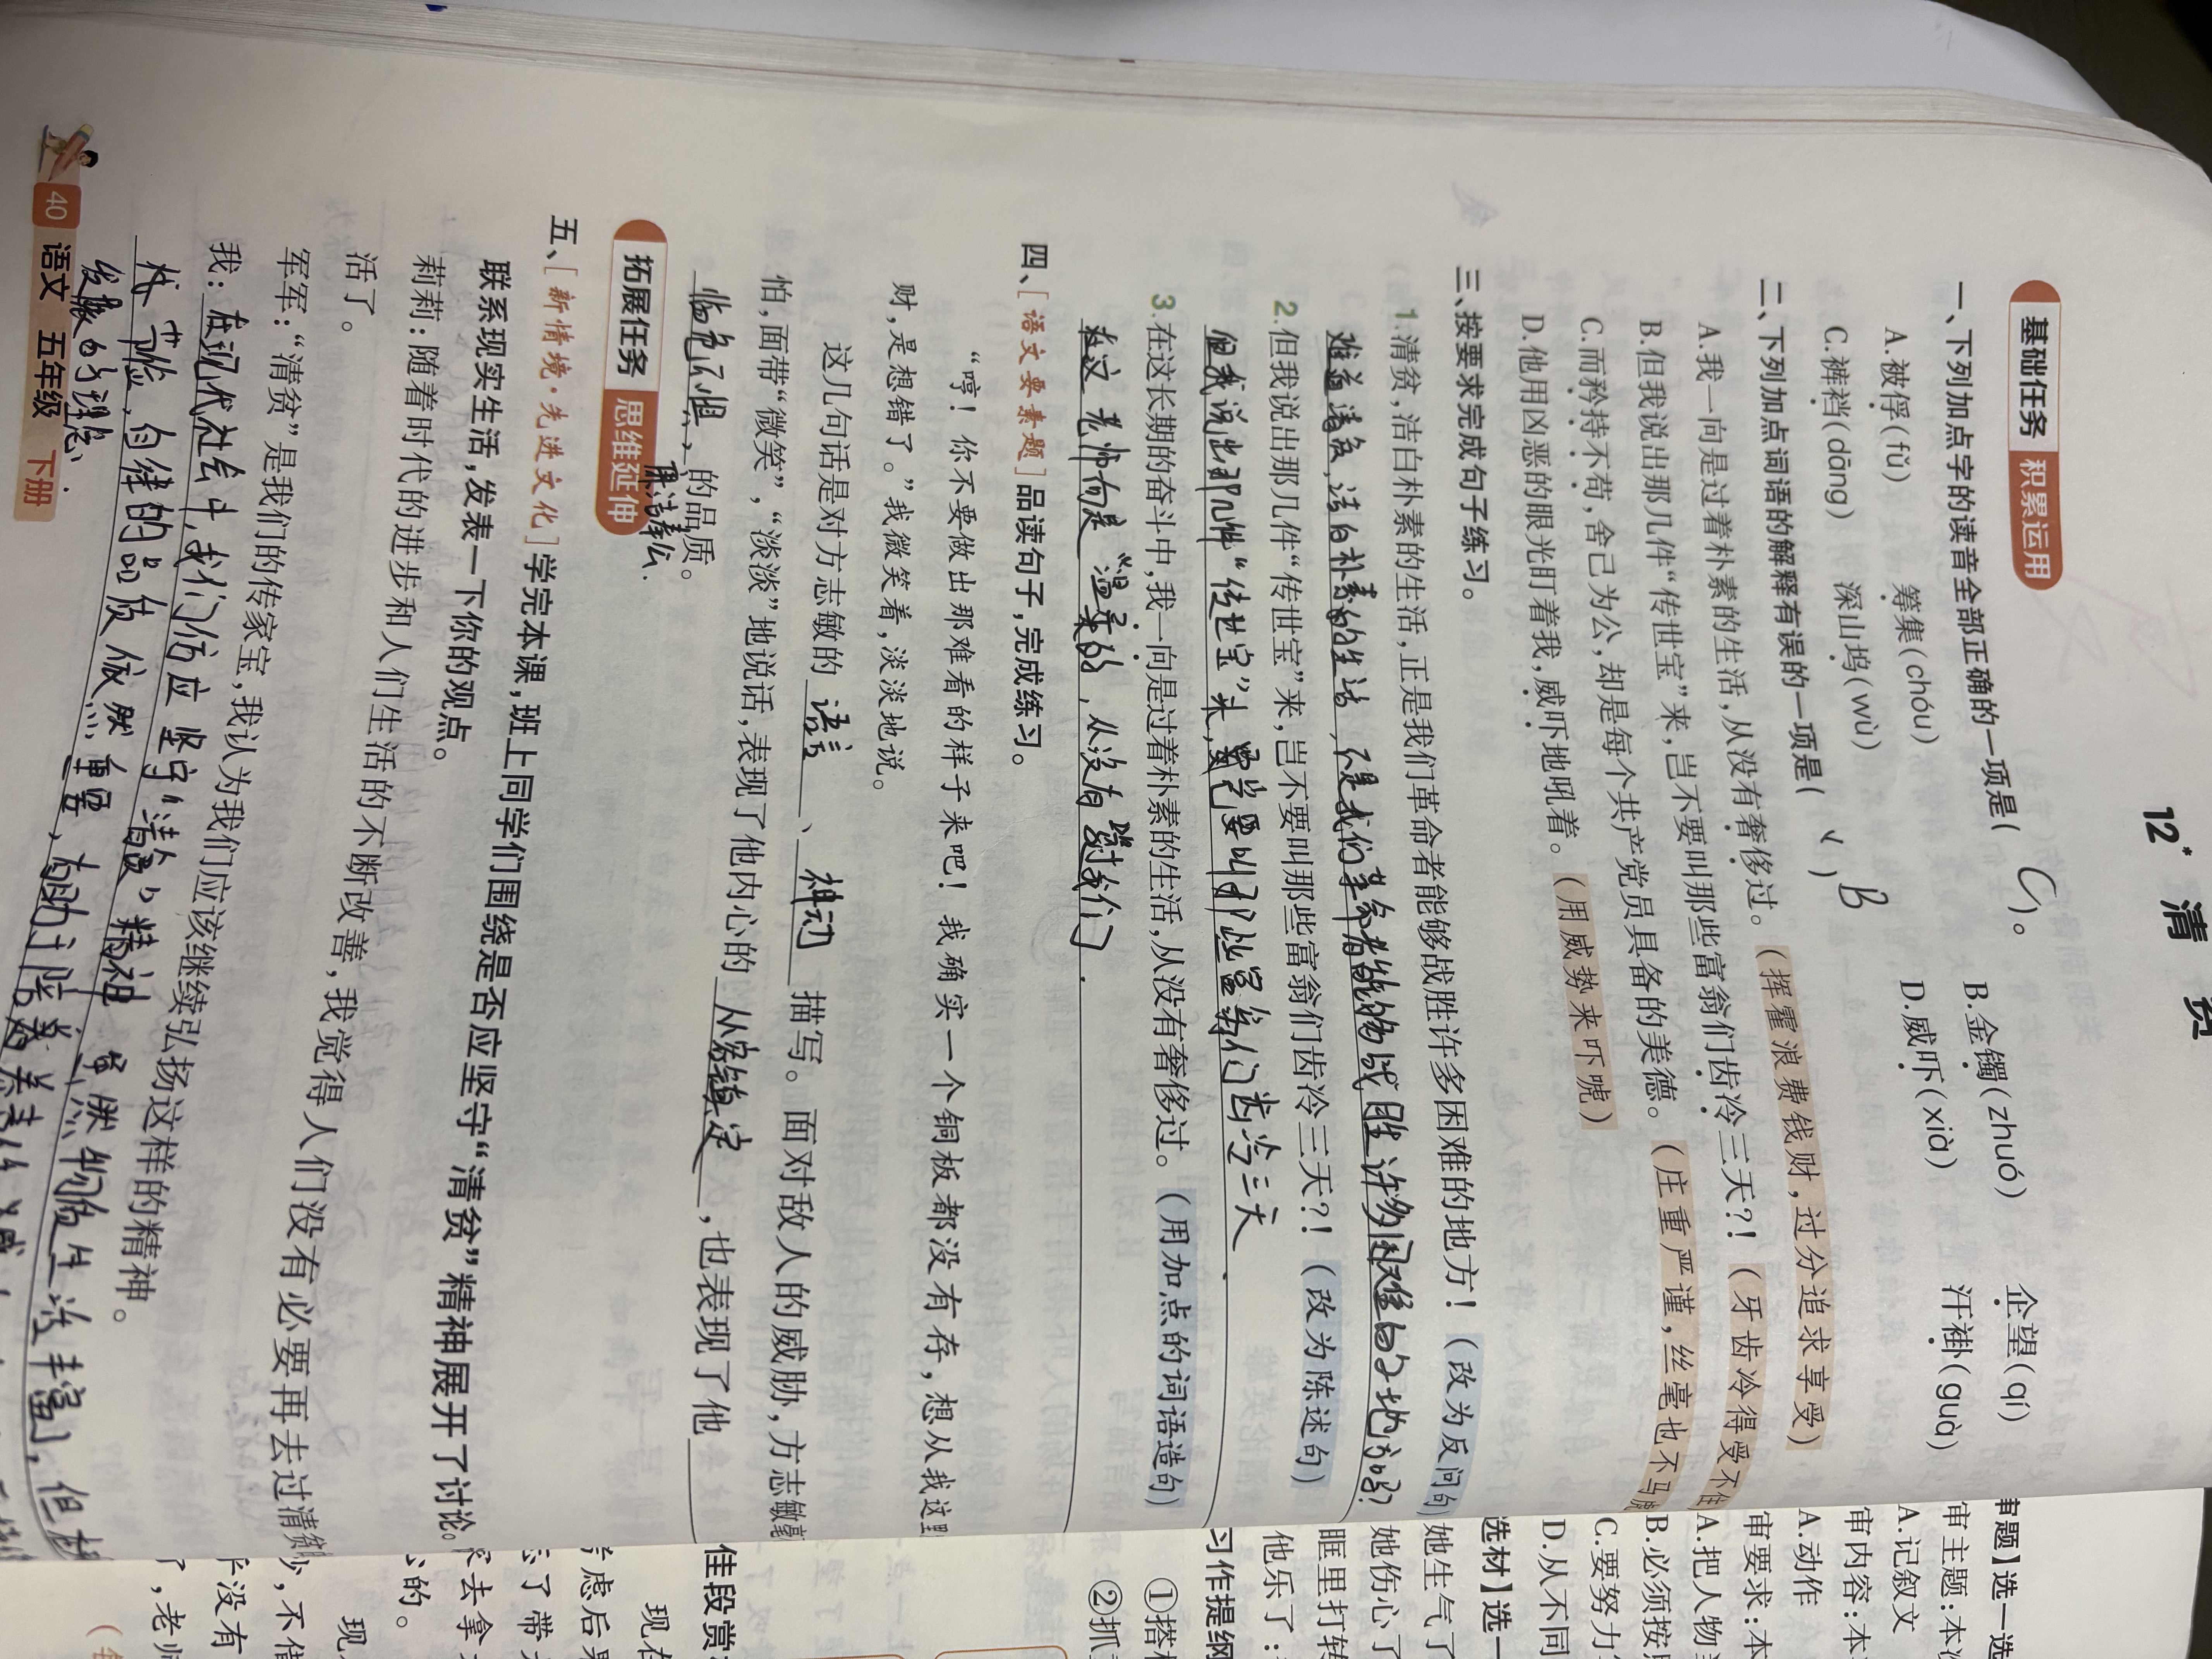 12* 清 贫
基础任务 积累运用
一、下列加点字的读音全部正确的一项是( C )。
A.被俘(fǔ) 筹集(chóu) B.金镯(zhuó) 企望(qí)
C.裤裆(dāng) 深山坞(wù) D.威吓(xià) 汗褂(guà)
二、下列加点词语的解释有误的一项是( ) B
A.我一向是过着朴素的生活,从没有奢侈过。(挥霍浪费钱财,过分追求享受)
B.但我说出那几件“传世宝”来,岂不要叫那些富翁们齿冷三天?!(牙齿冷得受不住
C.而矜持不苟,舍己为公,却是每个共产党员具备的美德。(庄重严谨,丝毫也不马虎
D.他用凶恶的眼光盯着我,威吓地吼着。(用威势来吓唬)
三、按要求完成句子练习。
1.清贫,洁白朴素的生活,正是我们革命者能够战胜许多困难的地方!(改为反问句
难道清贫,洁白朴素的生活,不是我们革命者能够战胜许多困难的地方吗?
2.但我说出那几件“传世宝”来,岂不要叫那些富翁们齿冷三天?!(改为陈述句)
但我说出那几件“传世宝”来,要叫那些富翁们齿冷三天.
3.在这长期的奋斗中,我一向是过着朴素的生活,从没有奢侈过。(用加点的词语造句)
老师一向是温柔的,从没有 我们.
四、[语文要素题]品读句子,完成练习。
“哼!你不要做出那难看的样子来吧!我确实一个铜板都没有存,想从我这里
财,是想错了。”我微笑着,淡淡地说。
这几句话是对方志敏的 语言 、 神动 描写。面对敌人的威胁,方志敏毫
怕,面带“微笑”,“淡淡”地说话,表现了他内心的 从容镇定 ,也表现了他
临危不惧、廉洁奉公 的品质。
拓展任务 思维延伸
五、[新情境·先进文化]学完本课,班上同学们围绕是否应坚守“清贫”精神展开了讨论。
联系现实生活,发表一下你的观点。
莉莉:随着时代的进步和人们生活的不断改善,我觉得人们没有必要再去过清贫
活了。
军军:“清贫”是我们的传家宝,我认为我们应该继续弘扬这样的精神。
我:在现代社会中,我们仍应坚守“清贫”精神 虽然物质生活丰富,但
节俭,自律的品质依然重要,
发展的理念.
40 语文 五年级 下册
审题】选一选
审主题:本次
A.记叙文
审内容:本
A.动作
审要求:本
A.把人物
B.必须按
C.要努力
D.从不同
选材】选一
她生气了
她伤心了
眶里打转
他乐了:
习作提纲
①搭
②抓
佳段赏
现在
虑后果
了带
去拿
的。
现
少,不借
没有
了,老师